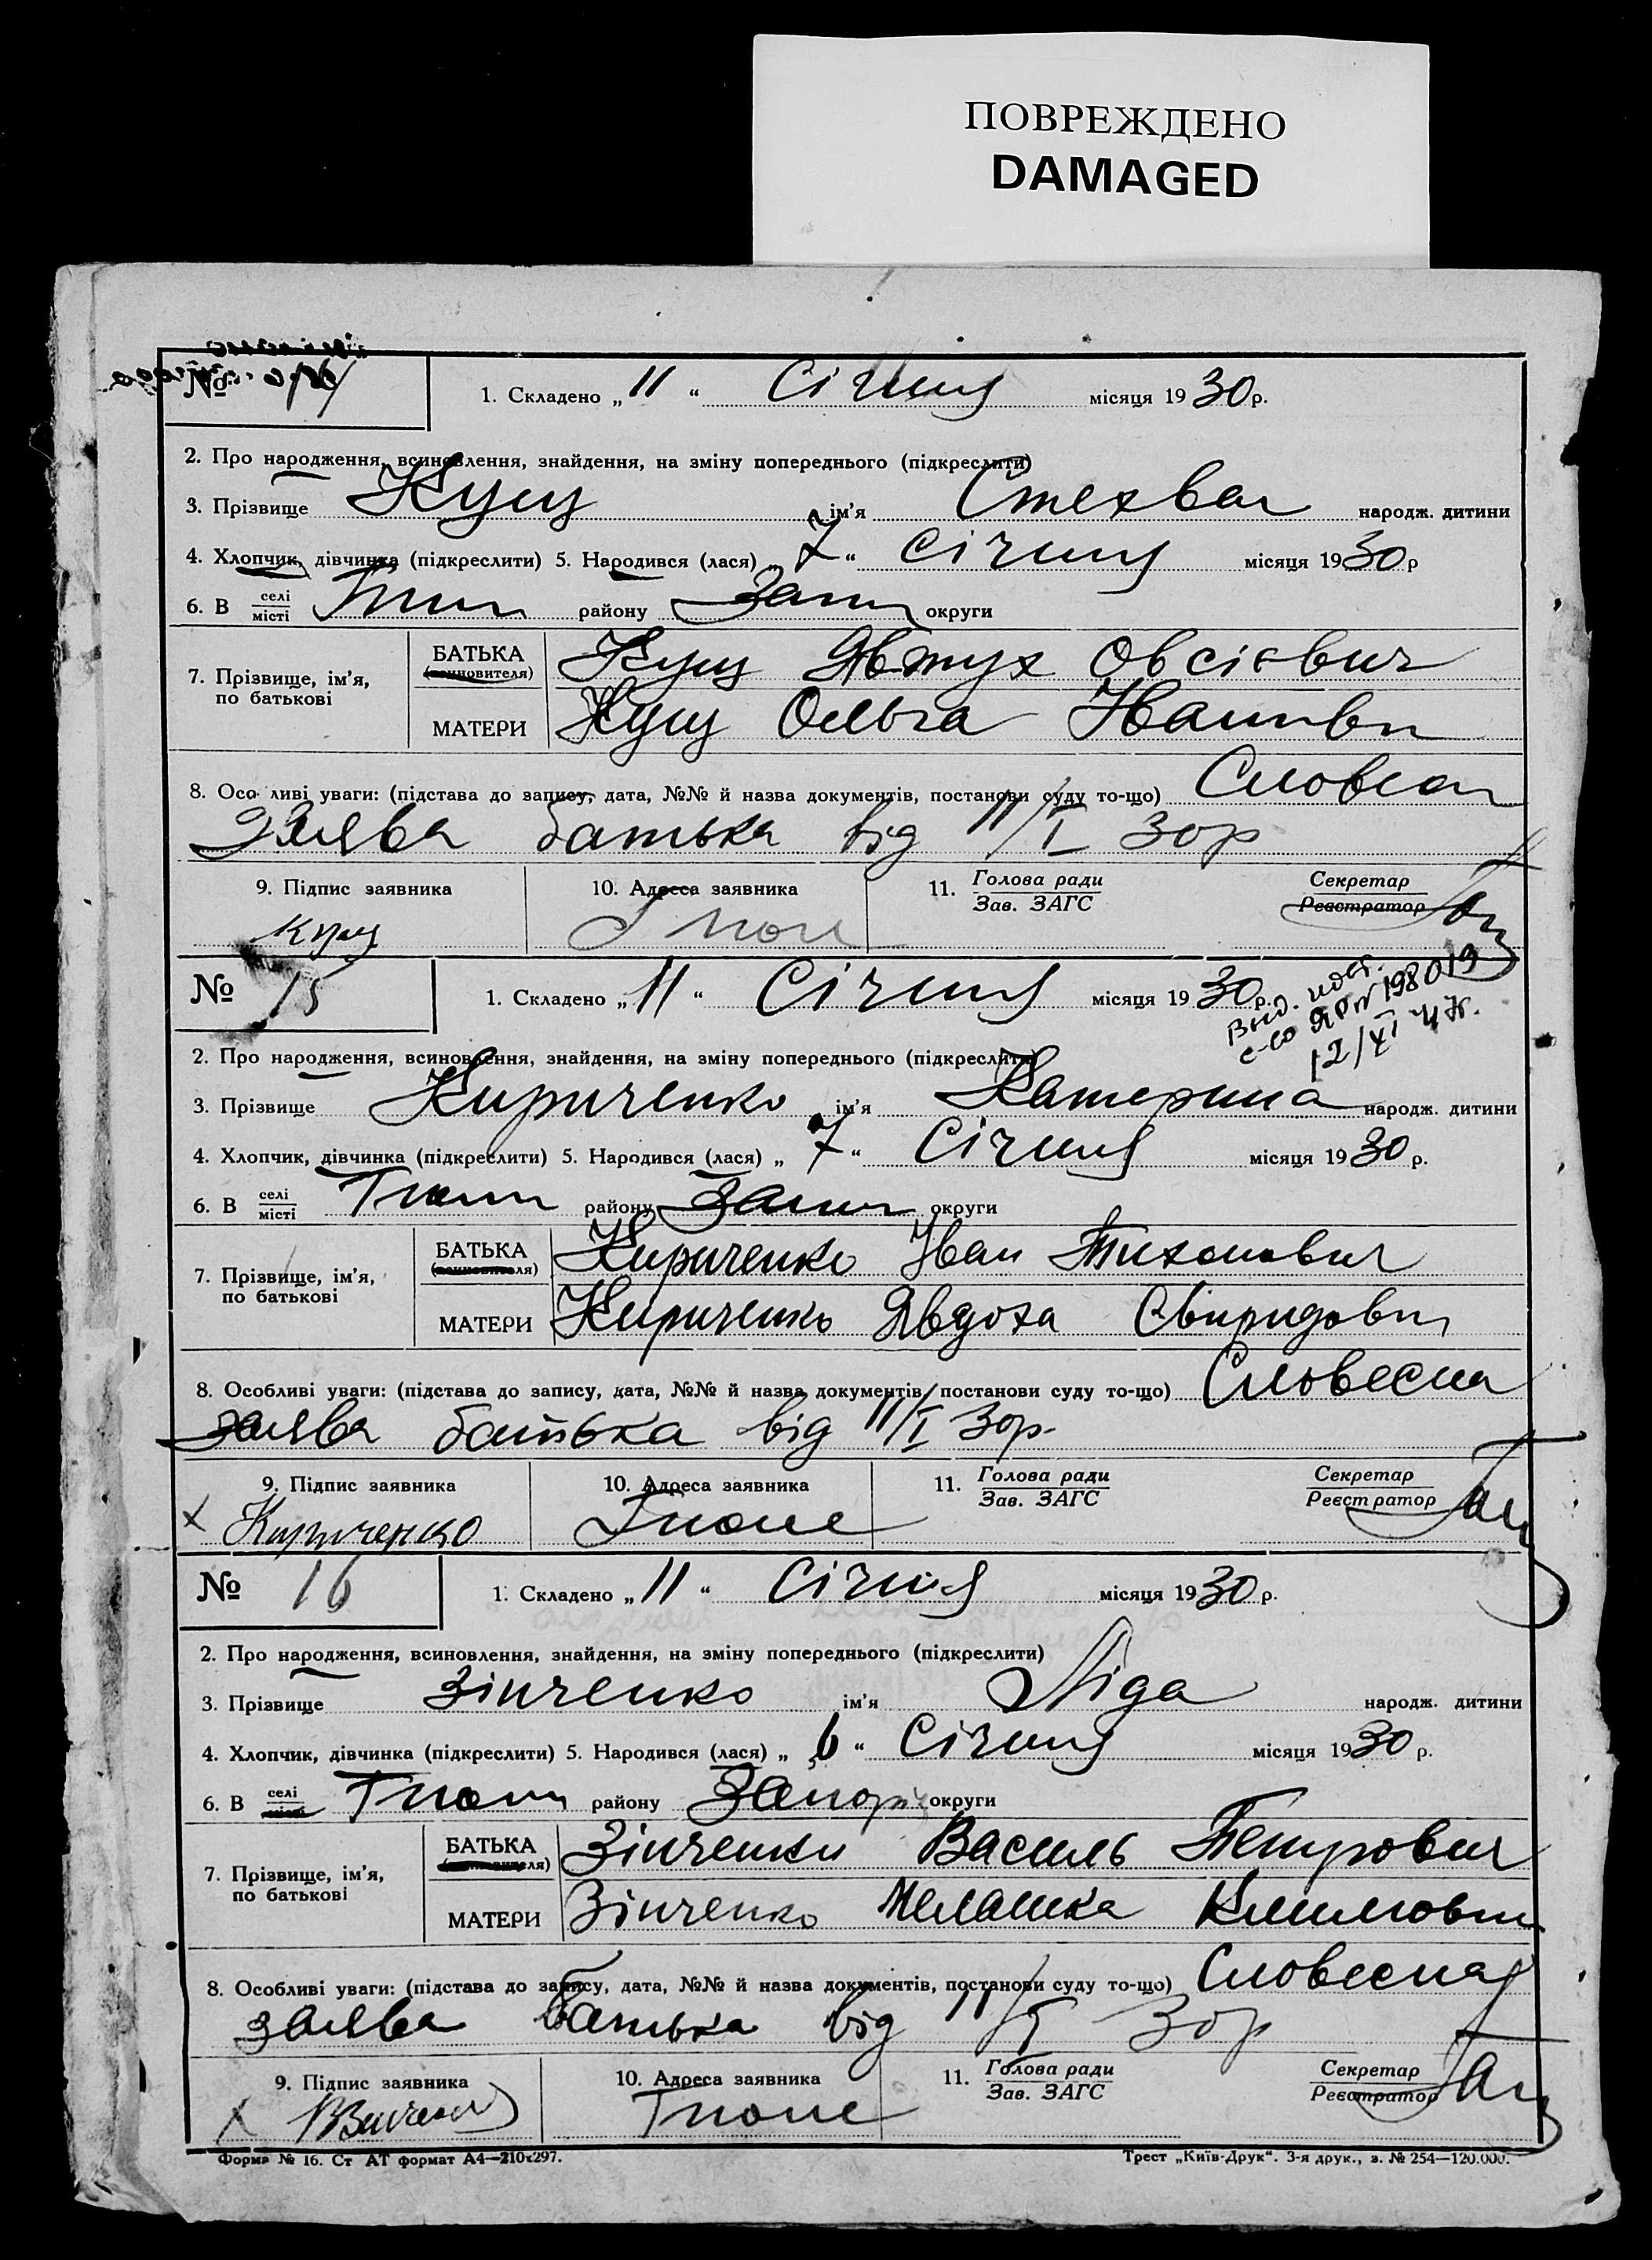 ПОВРЕЖДЕНО
DAMAGED
№ 14 1. Складено „11“ Січня місяця 1930 р.
2. Про народження, всиновлення, знайдення, на зміну попереднього (підкреслити)
3. Прізвище Кущ ім'я Стехван народж. дитини
4. Хлопчик, дівчинка (підкреслити) 5. Народився (лася) „7“ Січня місяця 1930 р
6. В селі місті району Запор округи
7. Прізвище, ім'я, по батькові
БАТЬКА (всиновителя) Кущ Явтух Овсієвич
МАТЕРИ Кущ Ольга Іванівн
8. Особливі уваги: (підстава до запису, дата, №№ й назва документів, постанови суду то-що) Словесн
заява батька від 11/I 30р
9. Підпис заявника 10. Адреса заявника 11. Голова ради Зав. ЗАГС Секретар Реєстратор
Кущ
№ 15 1. Складено „11“ Січня місяця 1930 р.
12/XI 47г.
2. Про народження, всиновлення, знайдення, на зміну попереднього (підкреслити)
3. Прізвище Кириченко ім'я Катерина народж. дитини
4. Хлопчик, дівчинка (підкреслити) 5. Народився (лася) „7“ Січня місяця 1930 р.
6. В селі місті району округи
7. Прізвище, ім'я, по батькові
БАТЬКА Кириченко Іван Тихонович
МАТЕРИ Кириченко Явдоха Свиридовн
8. Особливі уваги: (підстава до запису, дата, №№ й назва документів, постанови суду то-що) Словесна
заява батька від 11/I 30р.
9. Підпис заявника 10. Адреса заявника 11. Голова ради Зав. ЗАГС Секретар Реєстратор
х Кириченко
№ 16 1. Складено „11“ Січня місяця 1930 р.
2. Про народження, всиновлення, знайдення, на зміну попереднього (підкреслити)
3. Прізвище Зінченко ім'я Ліда народж. дитини
4. Хлопчик, дівчинка (підкреслити) 5. Народився (лася) „6“ Січня місяця 1930 р.
6. В селі району Запоріз округи
7. Прізвище, ім'я, по батькові
БАТЬКА Зінченко Василь Петрович
МАТЕРИ Зінченко Мелашка Климовн
8. Особливі уваги: (підстава до запису, дата, №№ й назва документів, постанови суду то-що) Словесная
заява батька від 11/I 30р
9. Підпис заявника 10. Адреса заявника 11. Голова ради Зав. ЗАГС Секретар Реєстратор
Форма № 16. Ст АТ формат А4—210х297. Трест „Київ-Друк“. 3-я друк., з. № 254—120.000.